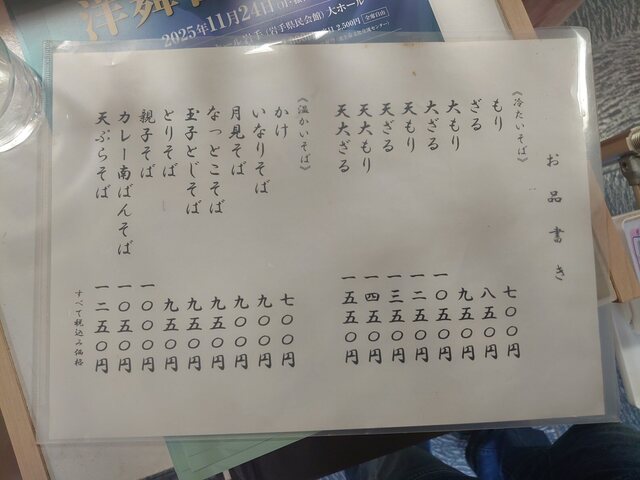 洋舞
2025年11月24日
岩手(岩手県民会館)大ホール
2,500円
お品書き
《冷たいそば》
もり 七〇〇円
ざる 八五〇円
大もり 九五〇円
大ざる 一〇五〇円
天もり 一二五〇円
天ざる 一三五〇円
天大もり 一四五〇円
天大ざる 一五五〇円
《温かいそば》
かけ 七〇〇円
いなりそば 九〇〇円
月見そば 九〇〇円
なっとこそば 九五〇円
玉子とじそば 九五〇円
とりそば 九五〇円
親子そば 一〇〇〇円
カレー南ばんそば 一〇五〇円
天ぷらそば 一二五〇円
すべて税込み価格